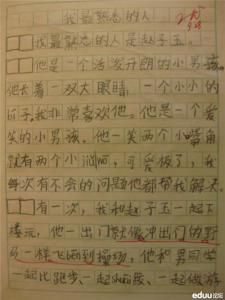 我最熟悉的人
我最熟悉的人是赵子玉。
他是一个活泼开朗的小男孩。
他长着一双大眼睛，一个小小的
我非常喜欢他。他是一个爱
笑的小男孩，他一笑两个小嘴角
就有两个小酒窝，可爱极了，我
每次有不会的问题他都帮我解决。
有一次，我和赵子玉一起下
楼玩，他一出门就像冲出门的野
马一样飞跑到操场，他和男同学
一起比跑步、一起
eduu论坛